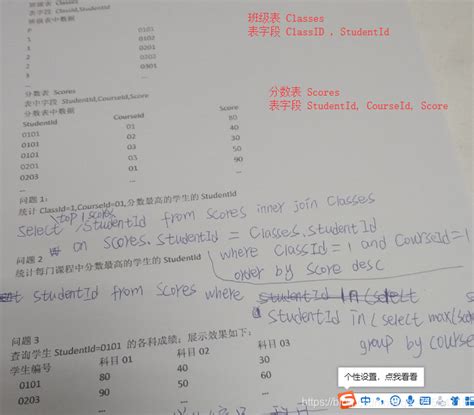 班级表 Classes
表字段 ClassId,StudentId
班级表中数据
0101
1 0102
1 0201
2 0202
2 0301
3
班级表 Classes
表字段 ClassID , StudentId
分数表 Scores
表中字段 StudentId,CourseId,Score
分数表中数据
分数表 Scores
表字段 StudentId, CourseId, Score
StudentId CourseId Score
0101 01 80
0101 02 40
0101 03 30
0201 01 50
0203 01 90
...
问题 1:
统计 ClassId=1,CourseId=01,分数最高的学生的 StudentId
top 1 scores.
Select StudentId from Scores inner join Classes
on Scores.StudentId = Classes.StudentId
where ClassId=1 and CourseId=1
order by Score desc
问题 2
统计每门课程中分数最高的学生的 StudentId
StudentId from Scores where
StudentId in (select max(
group by course
问题 3
查询学生 StudentId=0101 的各科成绩;展示效果如下:
学生编号 科目 01 科目 02 科目 03
0101 80 40 30
0203 90 50 60
个性设置,点我看看
中
https://b